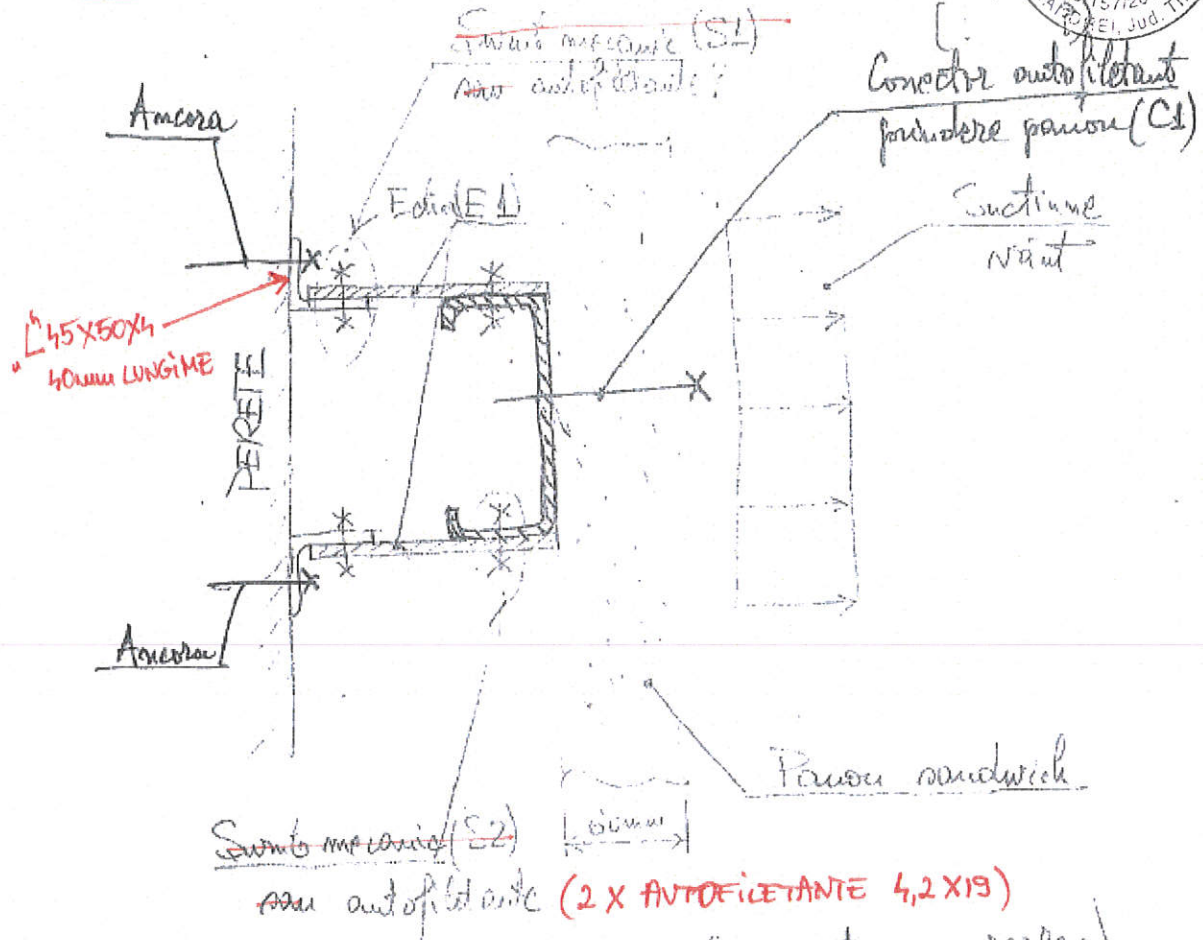 Șurub mecanic (S1)
sau autofiletante?
Conector autofiletant
prindere panou (C1)
Ancora
Eclisă (E1)
Suctiune
vânt
L 45X50X4
40mm LUNGIME
PERETE
Ancora
Panou sandwich
Șurub mecanic (S2)
60mm
sau autofiletante (2 X AUTOFILETANTE 4,2X19)
JUD. T